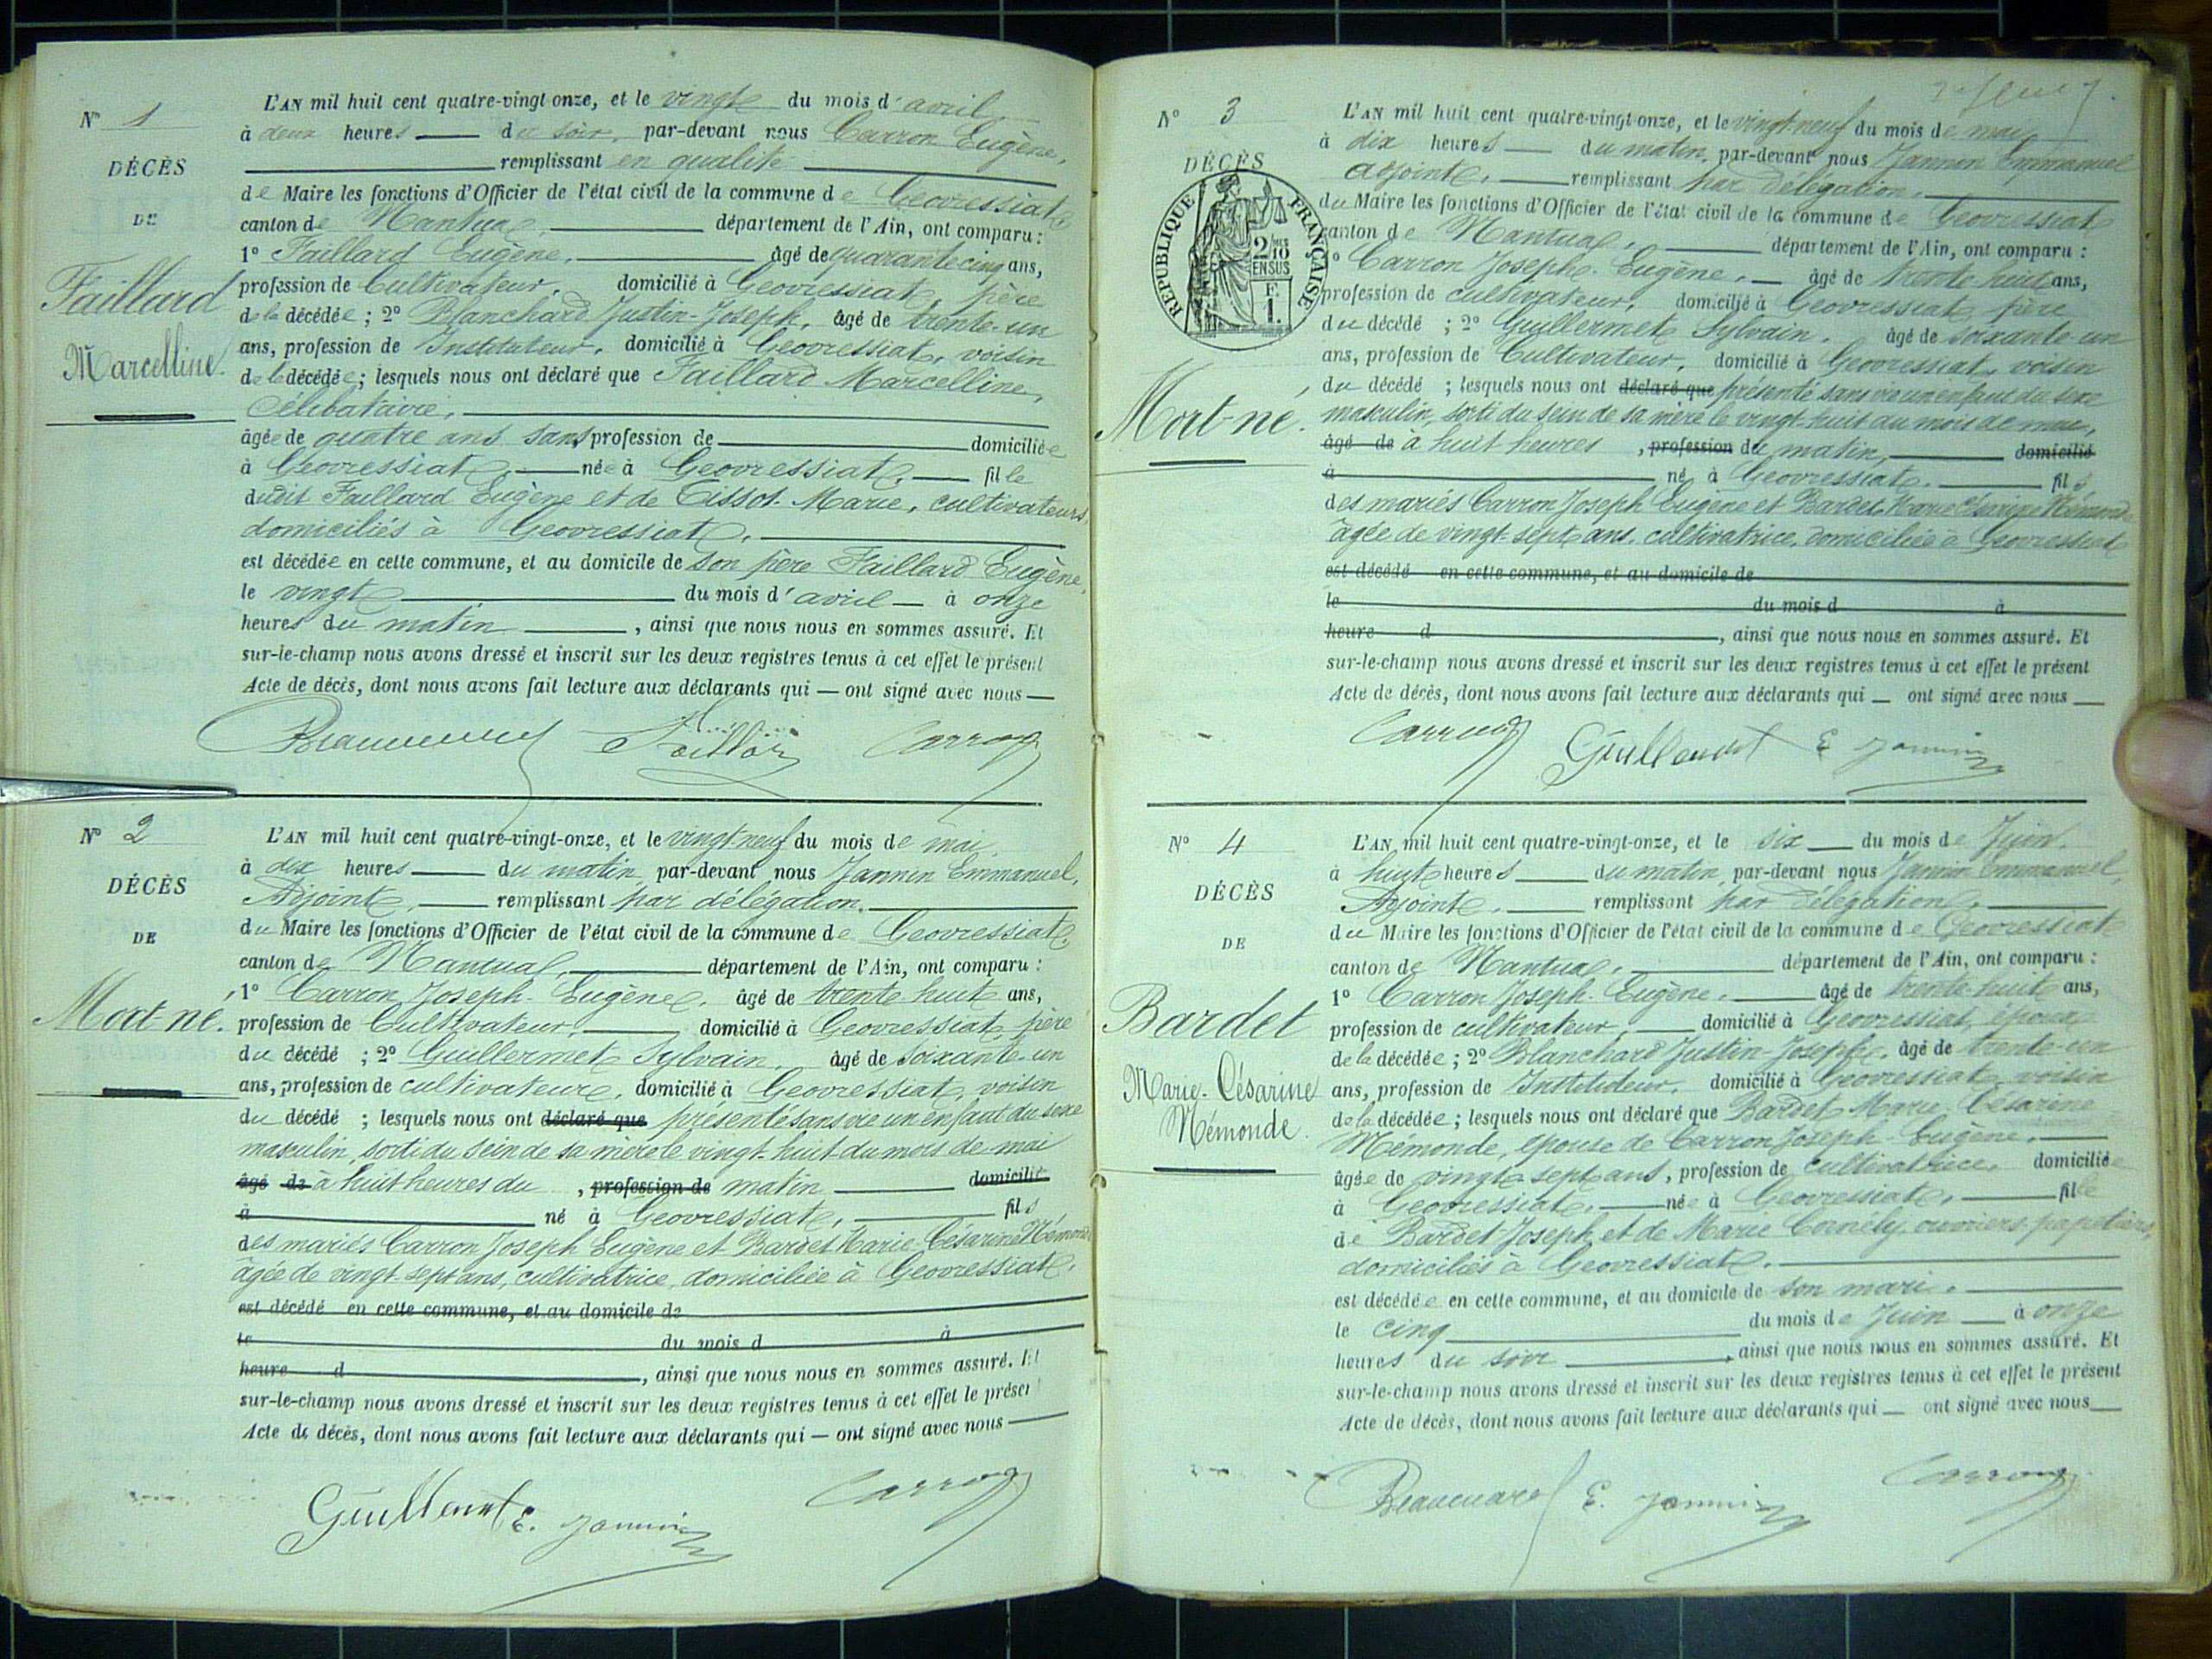 N° 1
DÉCÈS
DE
Faillard
Marcelline.
L'AN mil huit cent quatre-vingt onze, et le vingt du mois d'avril
à deux heures du soir, par-devant nous Carron Eugène,
remplissant en qualité
de Maire les fonctions d'Officier de l'état civil de la commune de Geovressiat
canton de Nantua, département de l'Ain, ont comparu :
1° Faillard Eugène, âgé de quarante cinq ans,
profession de Cultivateur, domicilié à Geovressiat, père
de la décédée ; 2° Blanchard Justin-Joseph, âgé de trente-un
ans, profession de Instituteur, domicilié à Geovressiat, voisin
de la décédée ; lesquels nous ont déclaré que Faillard Marcelline,
Célibataire,
âgée de quatre ans sans profession de domiciliée
à Geovressiat, née à Geovressiat, fille
dudit Faillard Eugène et de Tissot Marie, cultivateurs
domiciliés à Geovressiat.
est décédée en cette commune, et au domicile de son père Faillard Eugène,
le vingt du mois d'avril à onze
heures du matin, ainsi que nous nous en sommes assuré. Et
sur-le-champ nous avons dressé et inscrit sur les deux registres tenus à cet effet le présent
Acte de décès, dont nous avons fait lecture aux déclarants qui — ont signé avec nous —
Faillard Carron
N° 2
DÉCÈS
DE
Mort né.
L'AN mil huit cent quatre-vingt-onze, et le vingt neuf du mois de mai
à dix heures du matin, par-devant nous Jannin Emmanuel,
Adjoint, remplissant par délégation.
du Maire les fonctions d'Officier de l'état civil de la commune de Geovressiat,
canton de Nantua, département de l'Ain, ont comparu :
1° Carron Joseph-Eugène, âgé de trente huit ans,
profession de Cultivateur, domicilié à Geovressiat, père
du décédé ; 2° Guillermet Sylvain, âgé de soixante-un
ans, profession de cultivateur, domicilié à Geovressiat, voisin
du décédé ; lesquels nous ont déclaré que présenté sans vie un enfant du sexe
masculin, sorti du sein de sa mère le vingt-huit du mois de mai
âgé de à huit heures du , profession de matin domicilié
à né à Geovressiat, fils
des mariés Carron Joseph Eugène et Bardet Marie Césarine Mémonde
âgée de vingt-sept ans, cultivatrice, domiciliée à Geovressiat.
est décédé en cette commune, et au domicile de
le du mois d à
heure d , ainsi que nous nous en sommes assuré. Et
sur-le-champ nous avons dressé et inscrit sur les deux registres tenus à cet effet le présen
Acte de décès, dont nous avons fait lecture aux déclarants qui — ont signé avec nous —
Guillermet E. Jannin Carron
N° 3
DÉCÈS
RÉPUBLIQUE FRANÇAISE
2/10 EN SUS
F. 1.
Mort-né.
L'AN mil huit cent quatre-vingt-onze, et le vingt-neuf du mois de mai,
à dix heures du matin, par-devant nous Jannin Emmanuel
adjoint, remplissant par délégation,
du Maire les fonctions d'Officier de l'état civil de la commune de Geovressiat
canton de Nantua, département de l'Ain, ont comparu :
° Carron Joseph-Eugène, âgé de trente-huit ans,
profession de cultivateur, domicilié à Geovressiat père
du décédé ; 2° Guillermet Sylvain, âgé de soixante-un
ans, profession de Cultivateur, domicilié à Geovressiat, voisin
du décédé ; lesquels nous ont déclaré que présenté sans vie un enfant du sexe
masculin, sorti du sein de sa mère le vingt-huit du mois de mai,
âgé de à huit heures , profession de du matin, domicilié
à né à Geovressiat, fils
des mariés Carron Joseph Eugène et Bardet Marie Césarine Mémonde
âgée de vingt-sept ans, cultivatrice, domiciliée à Geovressiat
est décédé en cette commune, et au domicile de
le du mois d à
heure d , ainsi que nous nous en sommes assuré. Et
sur-le-champ nous avons dressé et inscrit sur les deux registres tenus à cet effet le présent
Acte de décès, dont nous avons fait lecture aux déclarants qui — ont signé avec nous —
Carron Guillermet E Jannin
N° 4
DÉCÈS
DE
Bardet
Marie-Césarine
Mémonde.
L'AN mil huit cent quatre-vingt-onze, et le six du mois de Juin,
à huit heures du matin, par-devant nous Jannin Emmanuel,
Adjoint, remplissant par délégation,
du Maire les fonctions d'Officier de l'état civil de la commune de Geovressiat
canton de Nantua, département de l'Ain, ont comparu :
1° Carron Joseph-Eugène, âgé de trente-huit ans,
profession de cultivateur, domicilié à Geovressiat, époux
de la décédée ; 2° Blanchard Justin-Joseph, âgé de trente-un
ans, profession de Instituteur, domicilié à Geovressiat voisin
de la décédée ; lesquels nous ont déclaré que Bardet Marie Césarine
Mémonde, épouse de Carron Joseph-Eugène,
âgée de vingt-sept ans, profession de cultivatrice, domiciliée
à Geovressiat, née à Geovressiat, fille
de Bardet Joseph et de Marie Cornély ouvriers papetiers,
domiciliés à Geovressiat.
est décédée en cette commune, et au domicile de son mari,
le cinq du mois de Juin à onze
heures du soir, ainsi que nous nous en sommes assuré. Et
sur-le-champ nous avons dressé et inscrit sur les deux registres tenus à cet effet le présent
Acte de décès, dont nous avons fait lecture aux déclarants qui — ont signé avec nous —
E. Jannin Carron